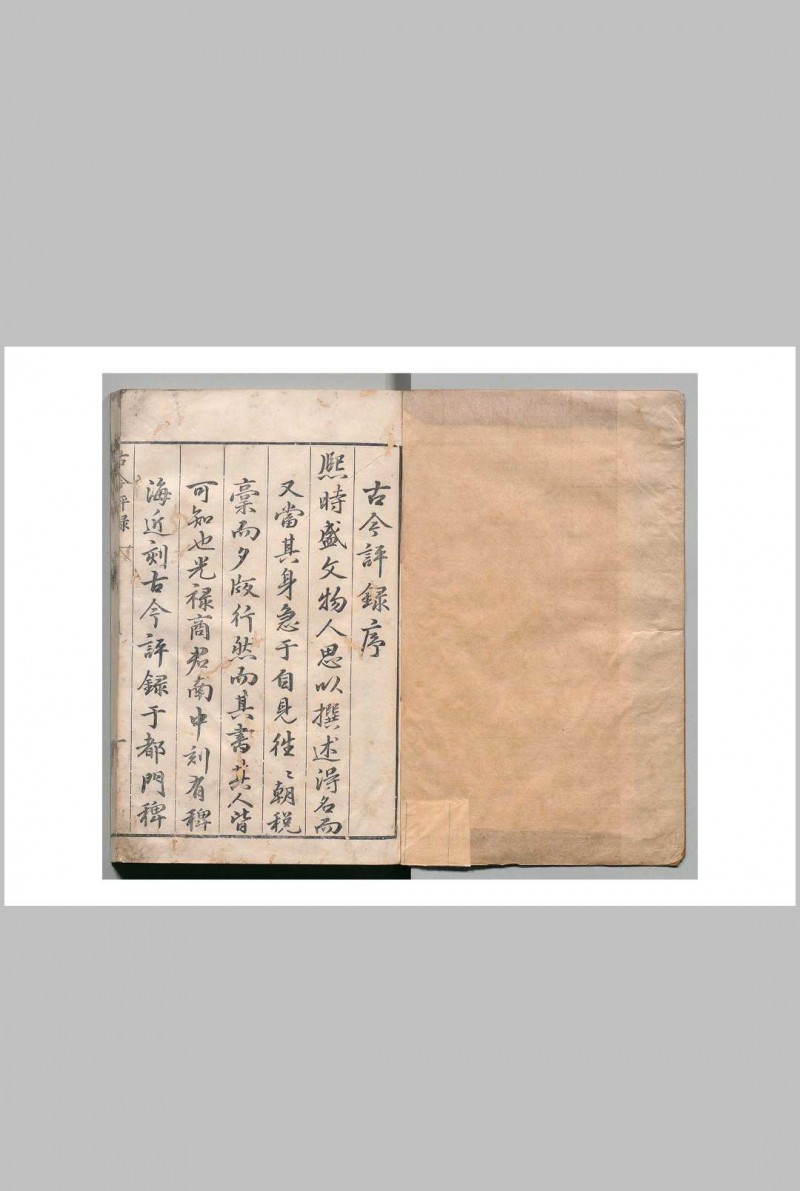 古今評録序
熙時盛文物人思以撰述得名而
又當其身急于自見往〻朝稅
稾而夕版行然而其書其人皆
可知也光禄商君南中刻有稗
海近刻古今評録于都門稗
古今評録